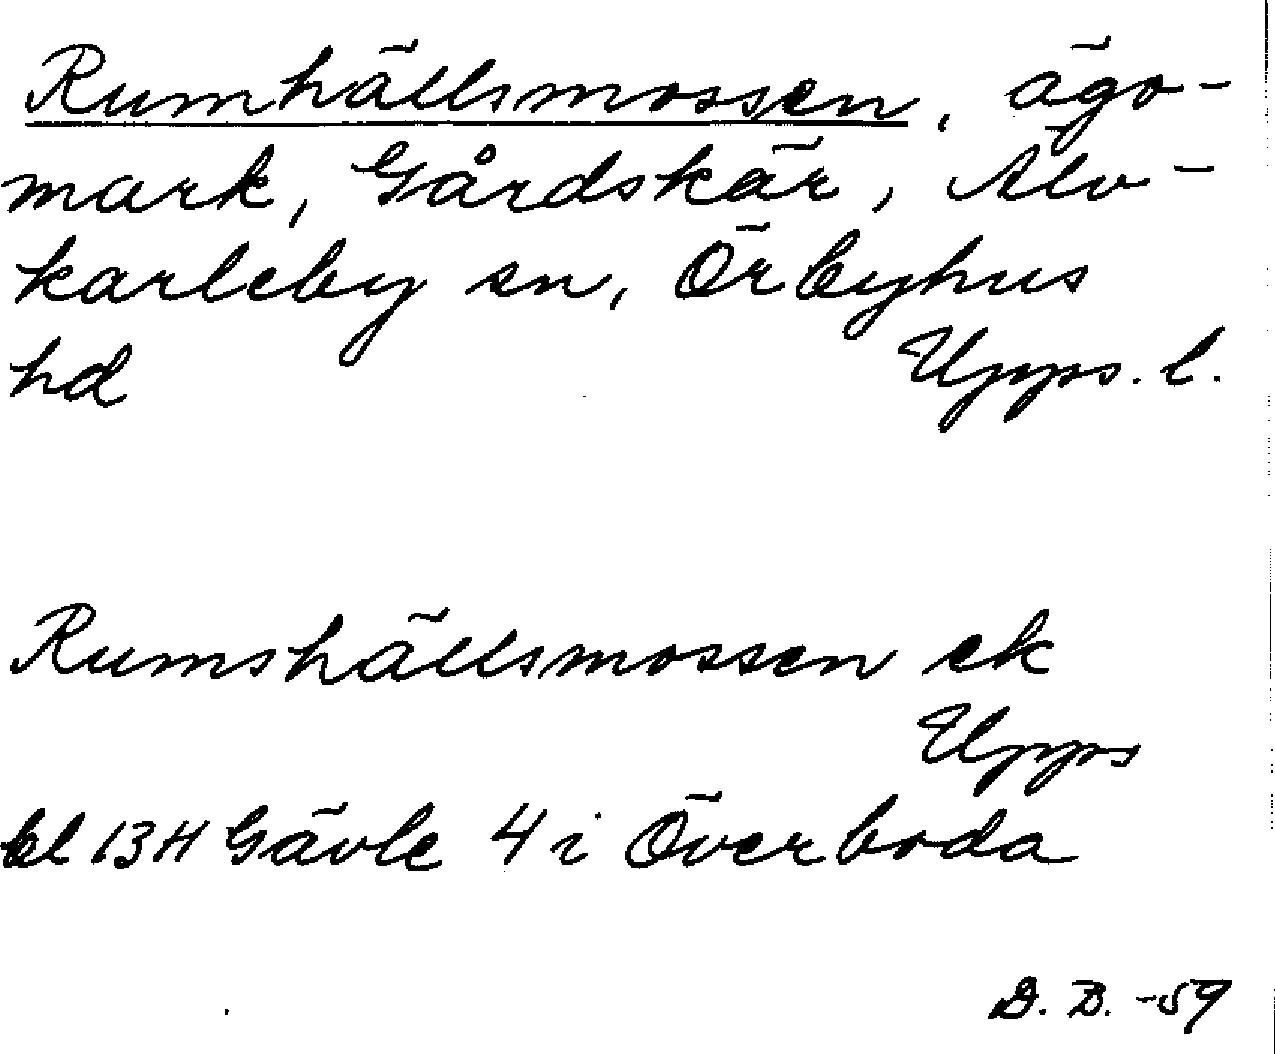 Rumhällsmossen, ägo-
mark, Gårdskär, Älv-
karleby sn, Örbyhus
hd Upps. l.
Rumshällsmossen ek
Upps
bl 13H Gävle 4 i Överboda
D. B. -59